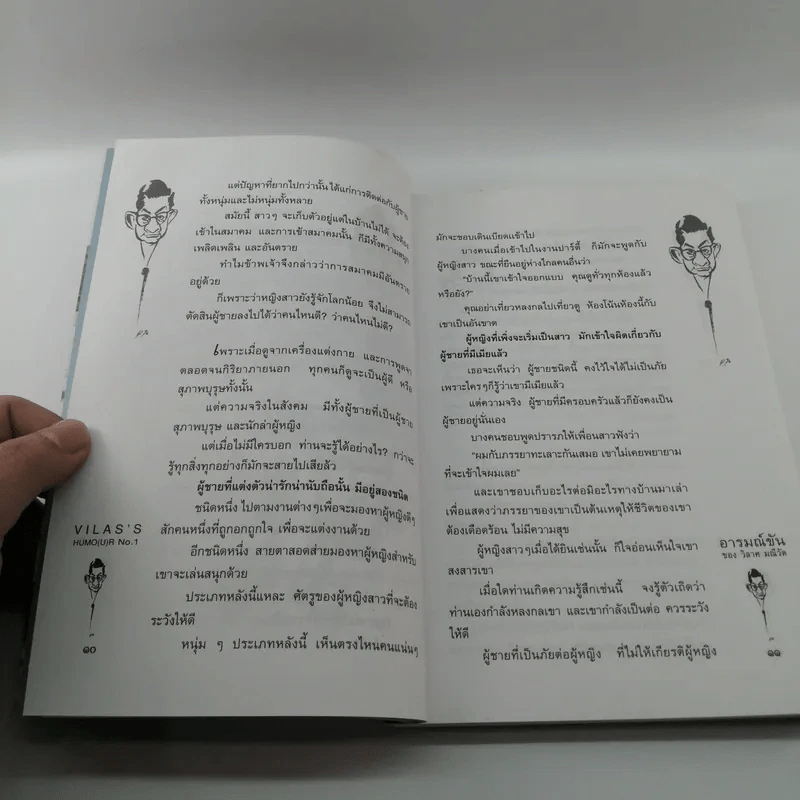 แต่ปัญหาที่ยากไปกว่านั้น ได้แก่การติดต่อกับผู้ชาย
ทั้งหนุ่มและไม่หนุ่มทั้งหลาย
สมัยนี้ สาวๆ จะเก็บตัวอยู่แต่ในบ้านไม่ได้ จะต้อง
เข้าในสมาคม และการเข้าสมาคมนั้น ก็มีทั้งความสนุก
เพลิดเพลิน และอันตราย
ทำไมข้าพเจ้าจึงกล่าวว่าการสมาคมมีอันตราย
อยู่ด้วย
ก็เพราะว่าหญิงสาวยังรู้จักโลกน้อย จึงไม่สามารถ
ตัดสินผู้ชายลงไปได้ว่าคนไหนดี? ว่าคนไหนไม่ดี?
เพราะเมื่อดูจากเครื่องแต่งกาย และการพูดจา
ตลอดจนกิริยาภายนอก ทุกคนก็ดูจะเป็นผู้ดี หรือ
สุภาพบุรุษทั้งนั้น
แต่ความจริงในสังคม มีทั้งผู้ชายที่เป็นผู้ชาย
สุภาพบุรุษ และนักล่าผู้หญิง
แต่เมื่อไม่มีใครบอก ท่านจะรู้ได้อย่างไร? กว่าจะ
รู้ทุกสิ่งทุกอย่างก็มักจะสายไปเสียแล้ว
ผู้ชายที่แต่งตัวน่ารักน่านับถือนั้น มีอยู่สองชนิด
ชนิดหนึ่ง ไปตามงานต่างๆเพื่อจะมองหาผู้หญิงดีๆ
สักคนหนึ่งที่ถูกอกถูกใจ เพื่อจะแต่งงานด้วย
อีกชนิดหนึ่ง สายตาสอดส่ายมองหาผู้หญิงสำหรับ
เขาจะเล่นสนุกด้วย
ประเภทหลังนี้แหละ ศัตรูของผู้หญิงสาวที่จะต้อง
ระวังให้ดี
หนุ่ม ๆ ประเภทหลังนี้ เห็นตรงไหนคนแน่นๆ
VILAS'S
HUMO(U)R No.1
๑๐
มักจะชอบเดินเบียดเข้าไป
บางคนเมื่อเข้าไปในงานปาร์ตี้ ก็มักจะพูดกับ
ผู้หญิงสาว ขณะที่ยืนอยู่ห่างไกลคนอื่นว่า
"บ้านนี้เขาเข้าใจออกแบบ คุณดูทั่วทุกห้องแล้ว
หรือยัง?"
คุณอย่าเที่ยวหลงกลไปเที่ยวดู ห้องโน้นห้องนี้กับ
เขาเป็นอันขาด
ผู้หญิงที่เพิ่งจะเริ่มเป็นสาว มักเข้าใจผิดเกี่ยวกับ
ผู้ชายที่มีเมียแล้ว
เธอจะเห็นว่า ผู้ชายชนิดนี้ คงไว้ใจได้ไม่เป็นภัย
เพราะใครๆก็รู้ว่าเขามีเมียแล้ว
แต่ความจริง ผู้ชายที่มีครอบครัวแล้วก็ยังคงเป็น
ผู้ชายอยู่นั่นเอง
บางคนชอบพูดปรารภให้เพื่อนสาวฟังว่า
"ผมกับภรรยาทะเลาะกันเสมอ เขาไม่เคยพยายาม
ที่จะเข้าใจผมเลย"
และเขาชอบเก็บอะไรต่อมิอะไรทางบ้านมาเล่า
เพื่อแสดงว่าภรรยาของเขาเป็นต้นเหตุให้ชีวิตของเขา
ต้องเดือดร้อน ไม่มีความสุข
ผู้หญิงสาวๆเมื่อได้ยินเช่นนั้น ก็ใจอ่อนเห็นใจเขา
สงสารเขา
เมื่อใดท่านเกิดความรู้สึกเช่นนี้ จงรู้ตัวเถิดว่า
ท่านเองกำลังหลงกลเขา และเขากำลังเป็นต่อ ควรระวัง
ให้ดี
ผู้ชายที่เป็นภัยต่อผู้หญิง ที่ไม่ให้เกียรติผู้หญิง
อารมณ์ขัน
ของ วิลาศ มณีวัต
๑๑